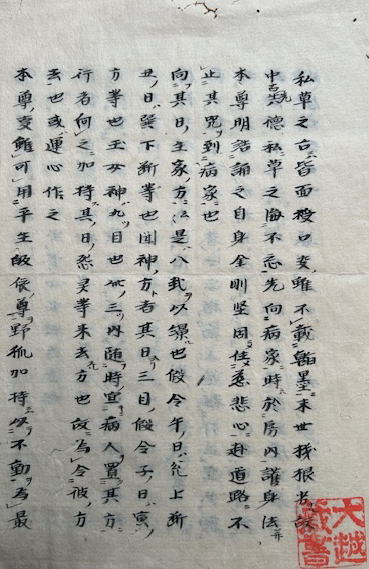 私草之 皆面授口交雖不載翰墨末世 者故
中古先德私草之 不忘先向病家時於房内護身法
本尊明 誦之自身 剛堅固住慈悲心赴道路不
止其咒到病家也
向其日生家方 是八卦以繰也假令午日 上断
丑日巽下断等也聞神方者其日三目假令子日寅
方等也玉女神九日也此三内随時宜病人置其方
行者何之加持其日 灵等来去方也故為令彼方
去也或運心作之
本尊 雖可用平生皈依尊野狐加持以不動為最
大越
藏書